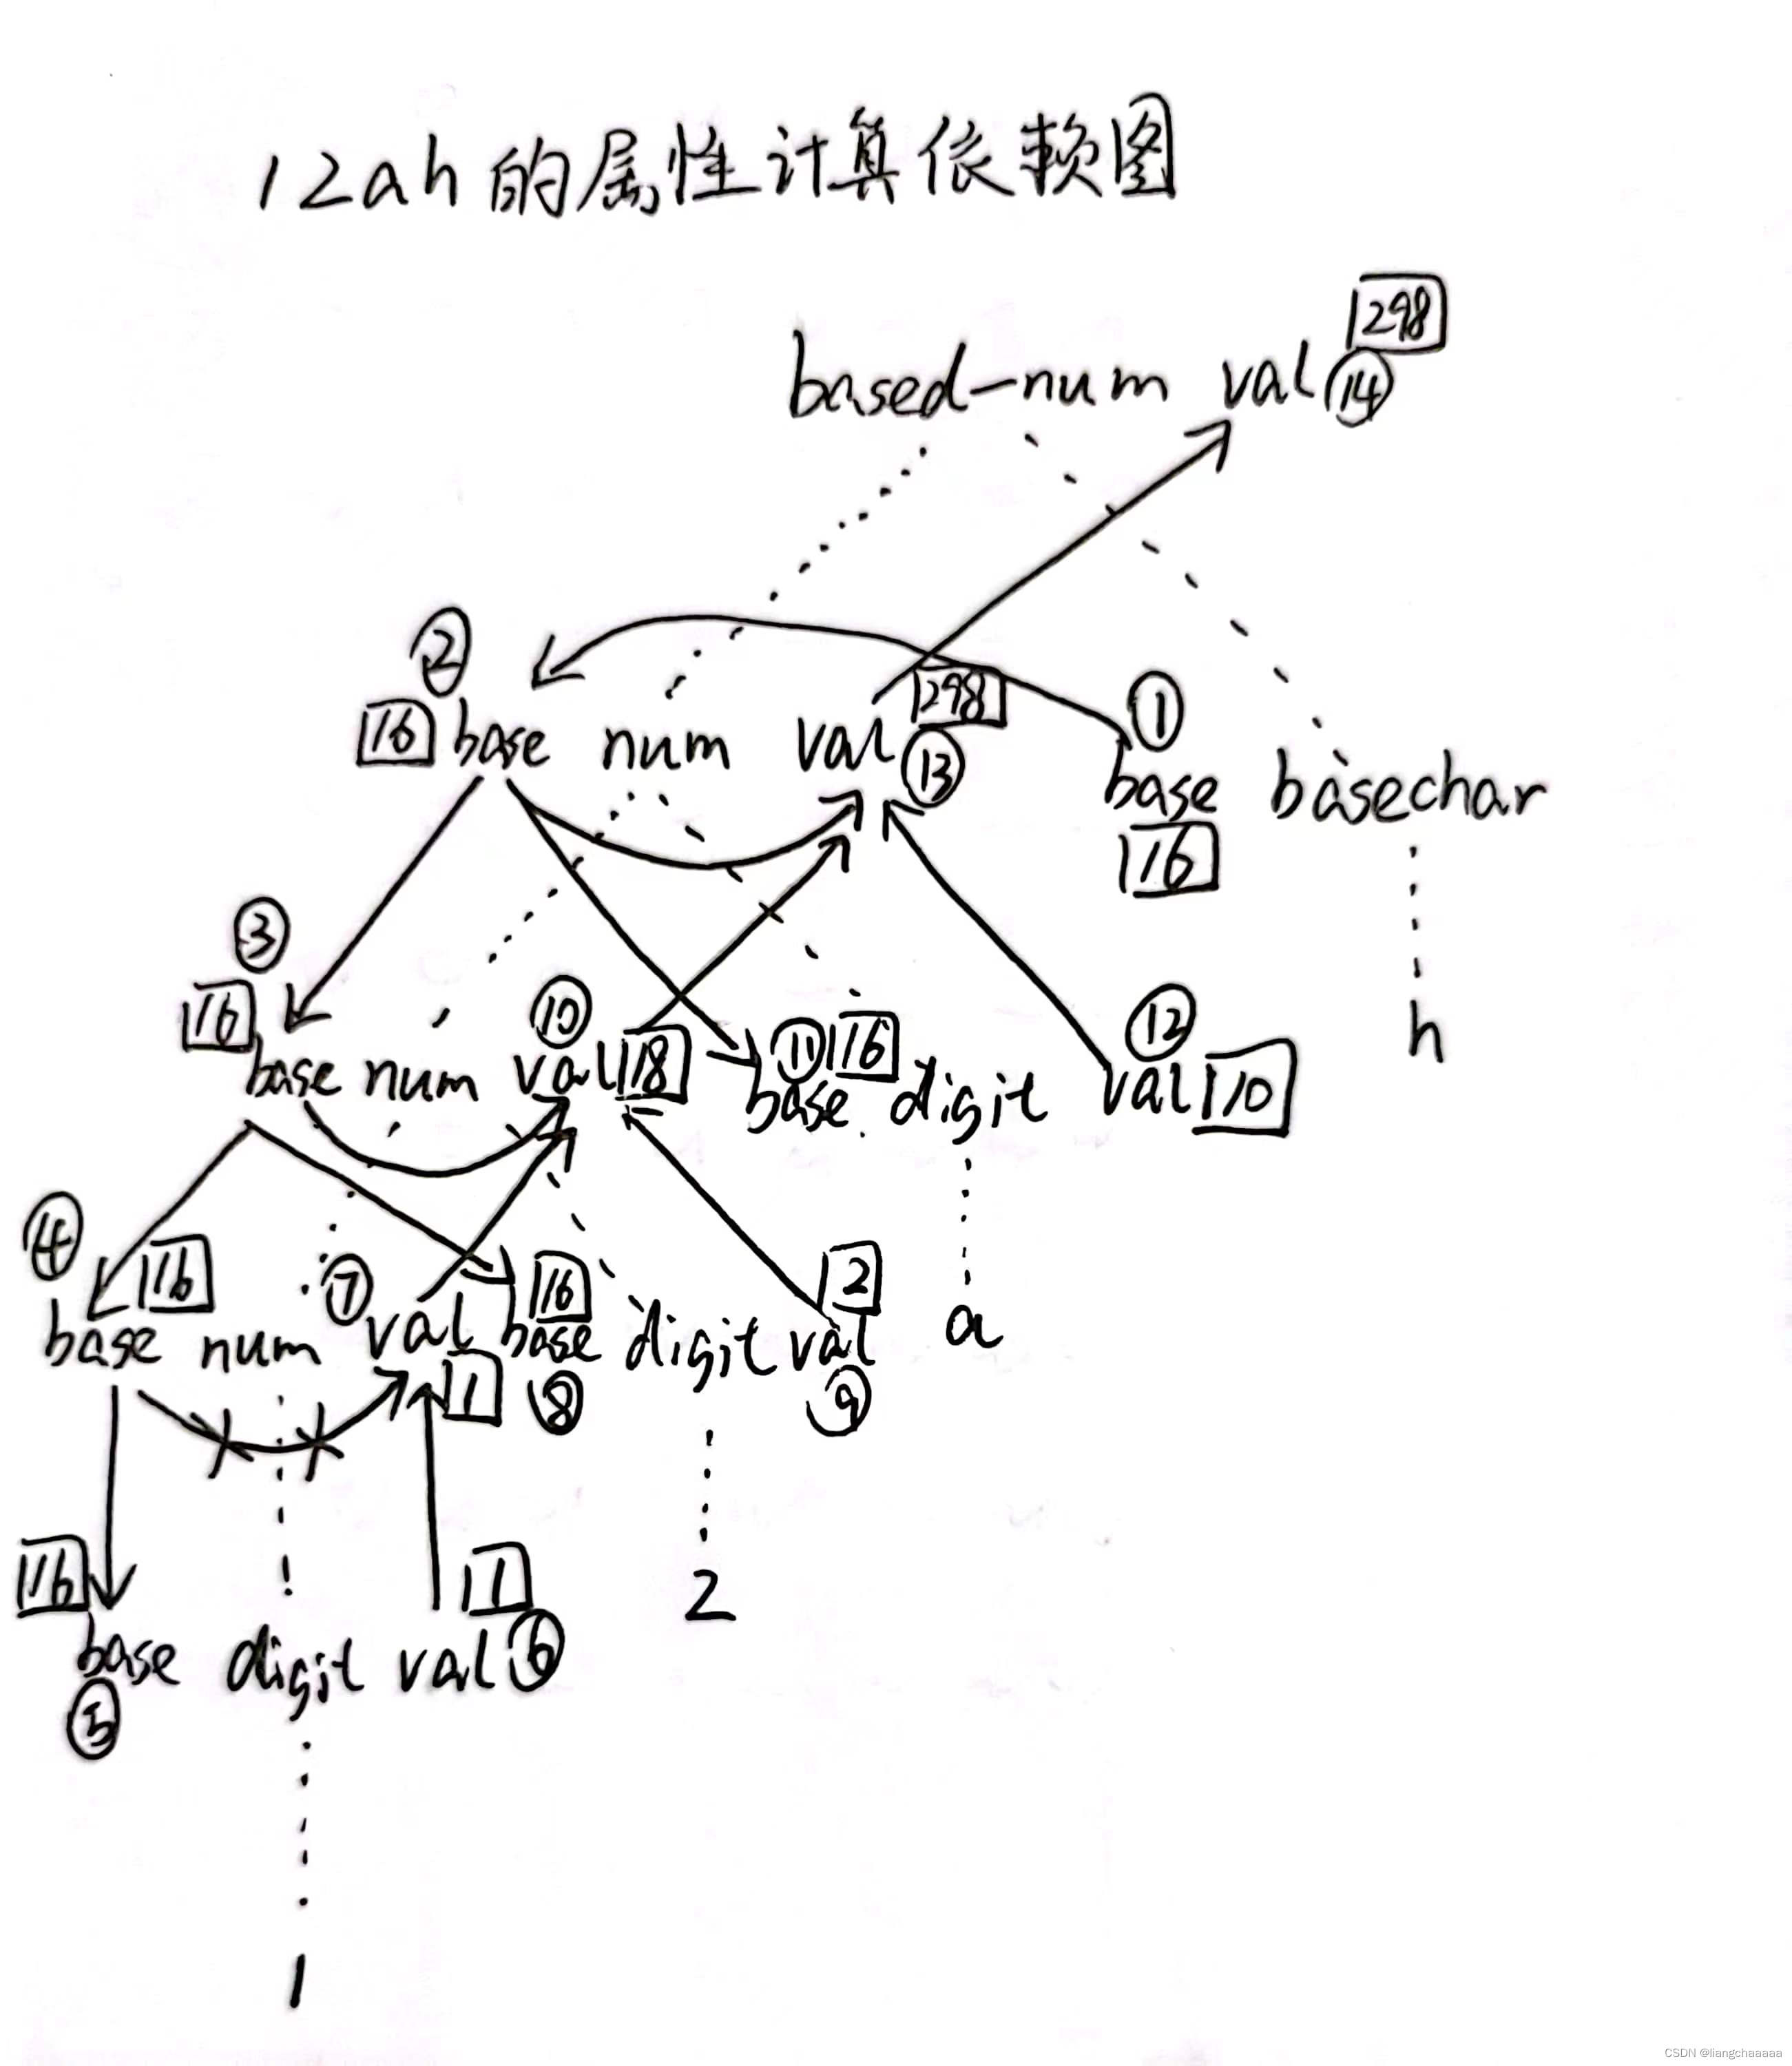 12ah的属性计算依赖图
298
based-num val 14
2
16 base num val 298 13
1
base basechar
16
3
16
10
11 16
12
h
base num val 18
base digit val 10
4
16
7
16
2
base num val base digit val
a
1
8
9
16
1
2
base digit val 6
5
1
CSDN @liangchaaaaa